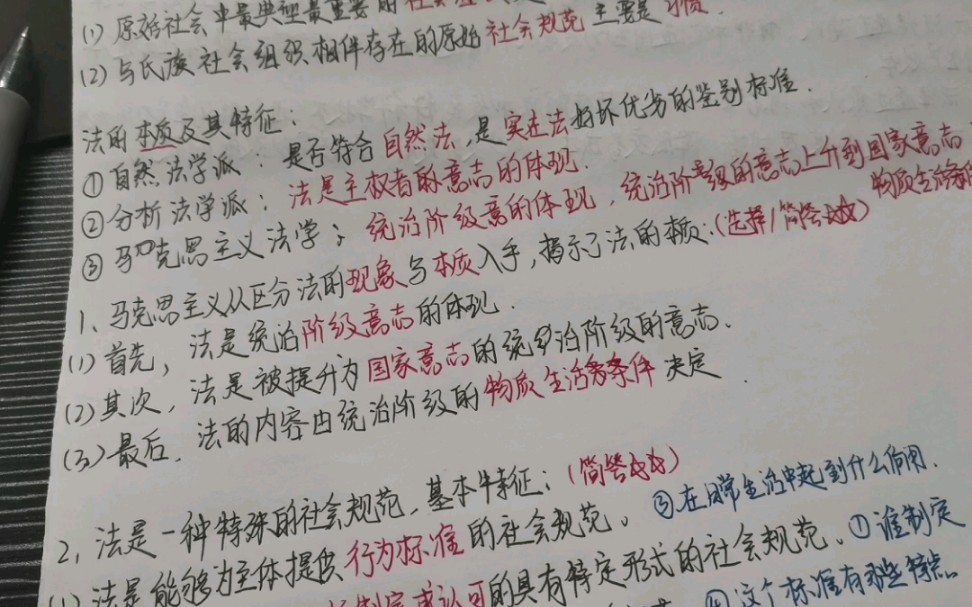 (1) 原始社会中最典型最重要的社会
(2) 与氏族社会组织相伴存在的原始社会规范主要是习惯.
法的本质及其特征：
① 自然法学派：是否符合自然法，是实在法好坏优劣的鉴别标准.
② 分析法学派：法是主权者的意志的体现.
③ 马克思主义法学：统治阶级意的体现，统治阶级的意志上升到国家意志
物质生活
1、马克思主义从区分法的现象与本质入手，揭示了法的本质.(选择/简答☆☆)
(1) 首先，法是统治阶级意志的体现.
(2) 其次，法是被提升为国家意志的统治阶级的意志、
(3) 最后，法的内容由统治阶级的物质生活条件决定.
2、法是一种特殊的社会规范，基本特征：(简答☆☆)
③ 在日常生活中起到什么作用.
(1) 法是能够为主体提供行为标准的社会规范。
① 谁制定
制定或认可的具有特定形式的社会规范、
④ 这个标准有哪些特点